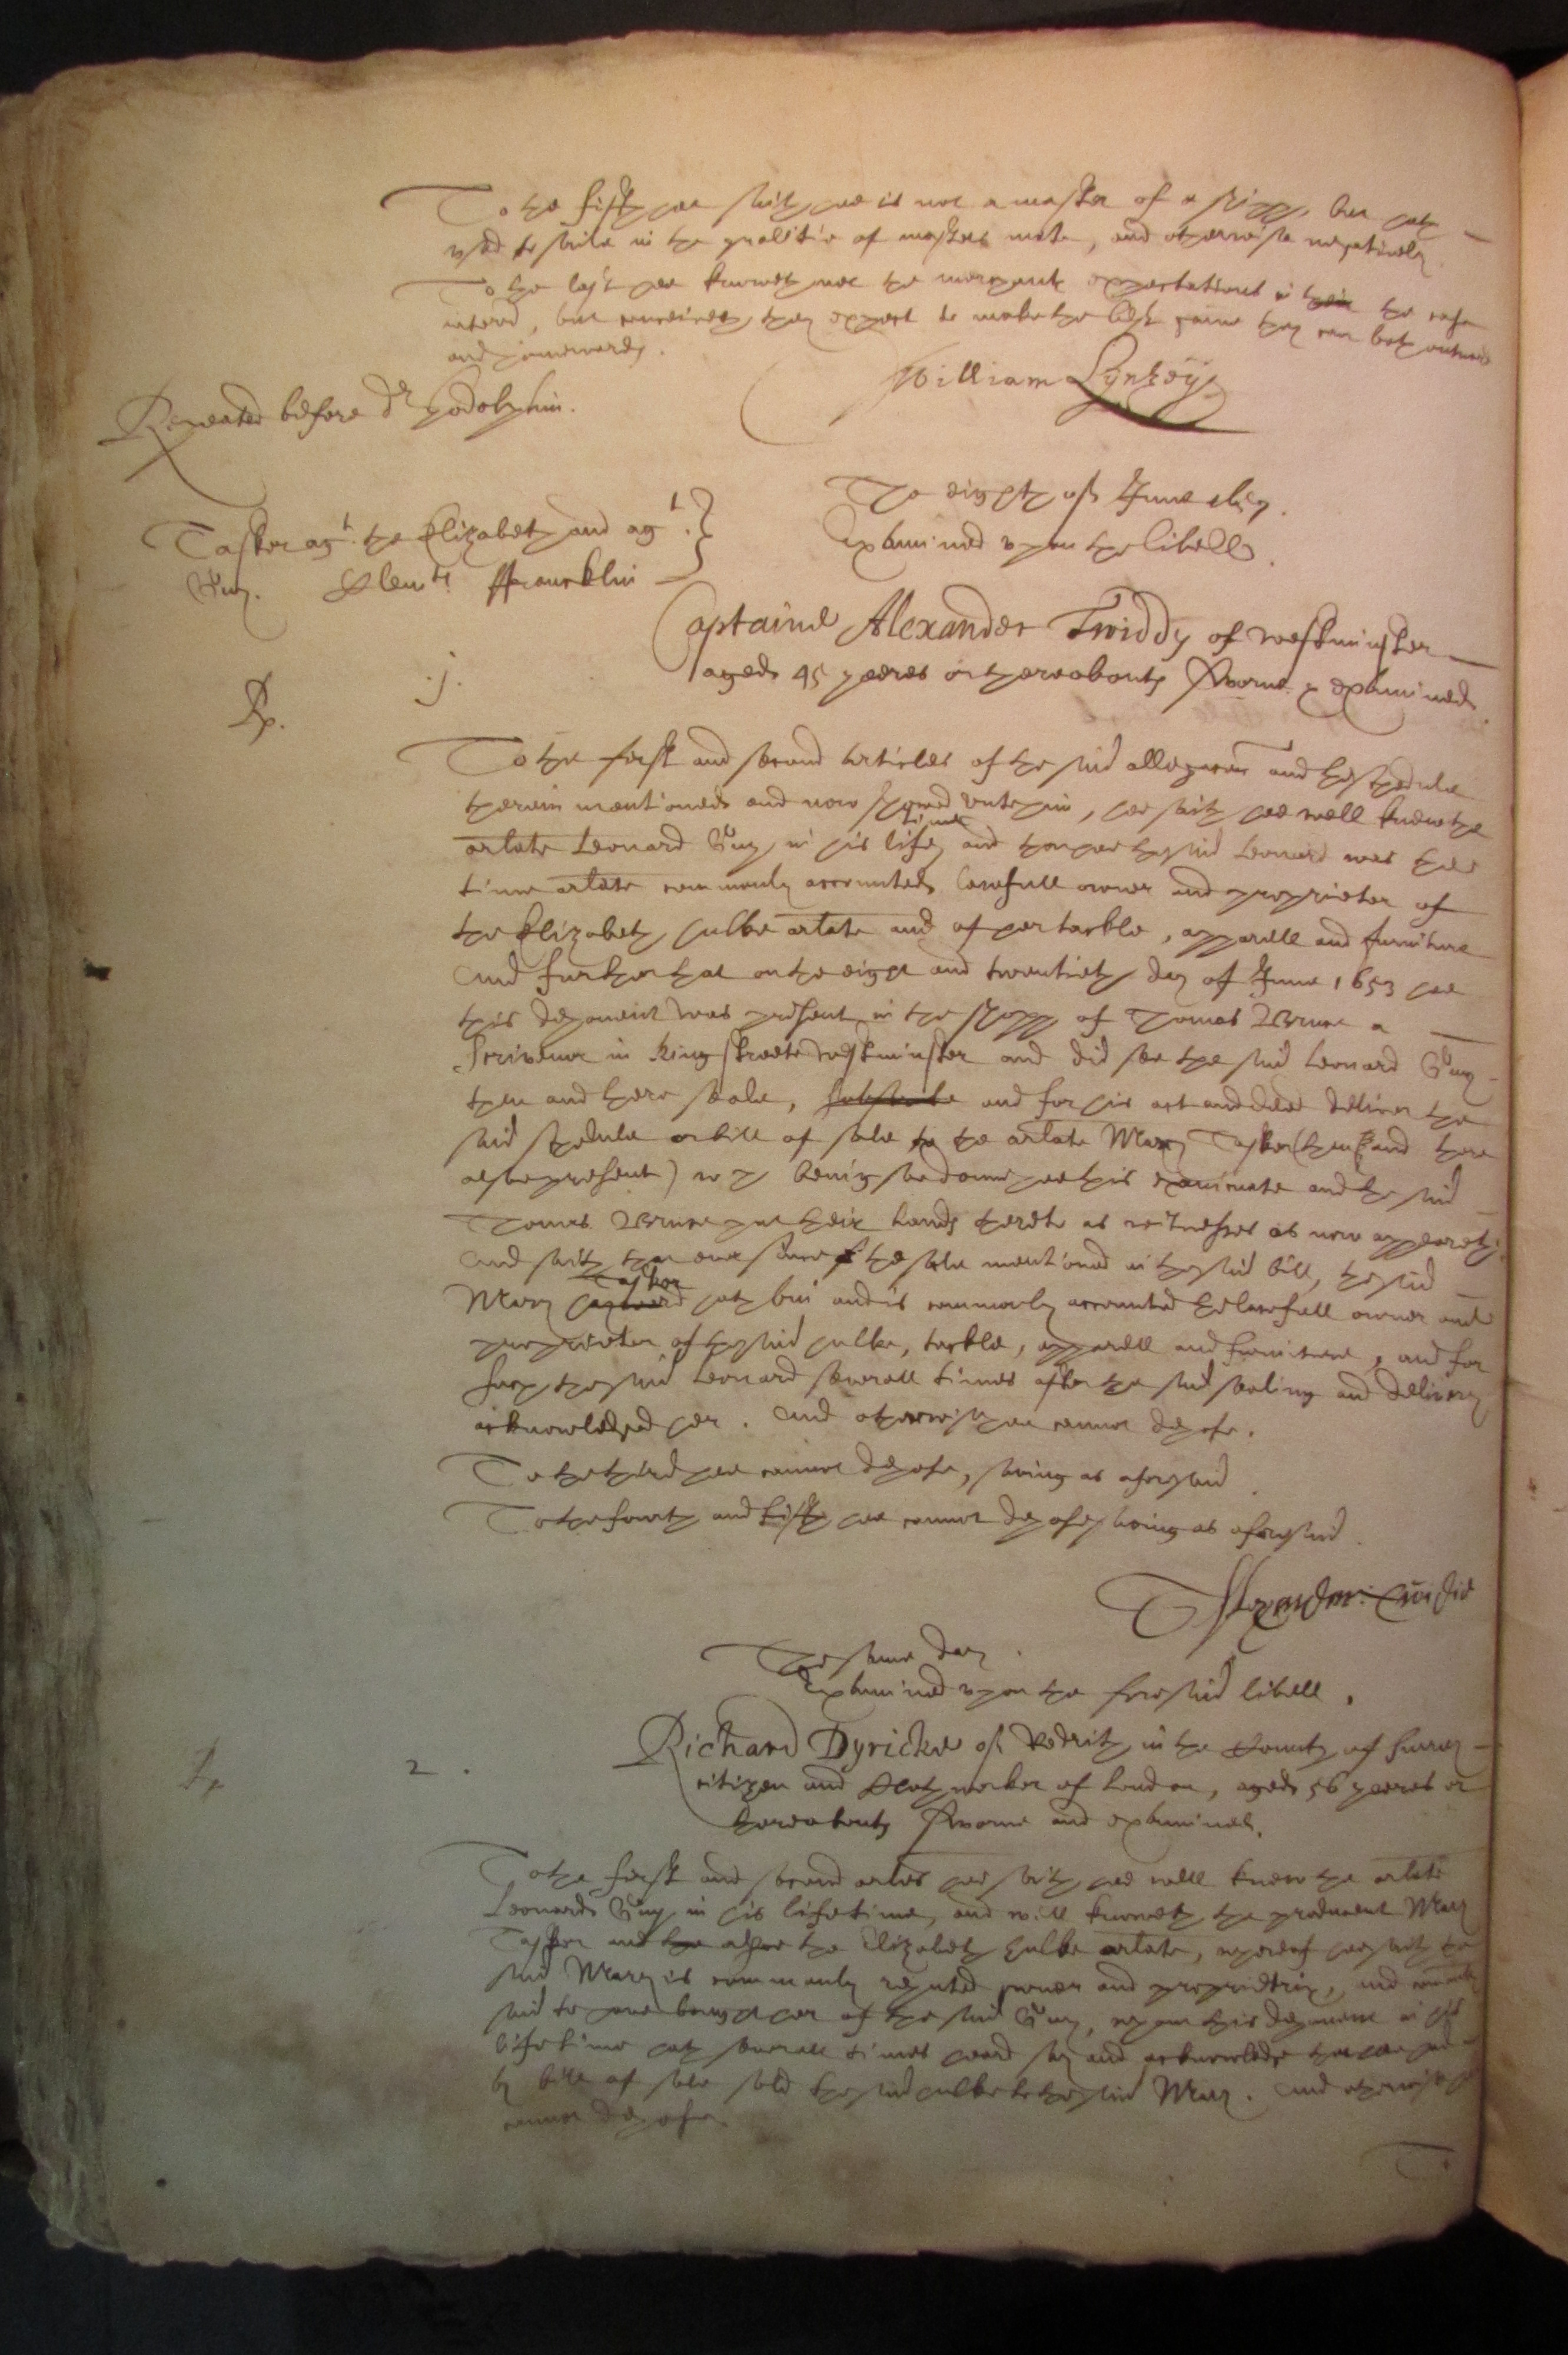 To the fifth hee saith hee is not a master of a shipp, but hath
used to saile in the qualitie of masters mate, and otherwise negatively.
To the last hee knoweth not the merchants expectations in their the case
interd, but conceiveth they expect to make the best gaine they can both outward
and homewards.
William Lynsey
Repeated before dr Godolphin.
The eighth of June 1655.
Tasker agt. the Elizabeth and agt.
Guy. Clem Francklin
Examined upon the libell.
Captaine Alexander Twiddy of Westminster
aged 45 yeeres or thereabouts Sworne & examined.
Rp. .j.
To the first and second articles of the said allegacon and the schedule
therein mentioned and now shewed unto him, hee saith hee well knew the
arlate Leonard Guy in his life time and that hee the said Leonard was the
time arlate commonly accounted lawfull owner and proprietor of
the Elizabeth hulke arlate and of her tackle, apparell and furniture
And further that on the eight and twentieth day of June 1653 hee
this deponent was present in the shopp of Thomas Bruce a
Scrivener in Kingstreete Westminster and did see the said Leonard Guy
then and there seale, subscribe and for his act and deed deliver the
said schedule or bill of sale to the arlate Mary Tasker (then and there
alsoe present) wch being soe donne hee this examinate and the said
Thomas Bruce put their hands thereto as witnesses as now appeareth.
And saith that ever since the sale mentioned in the said bill, the said
Mary Tasker hath bin and is commonly accounted the lawfull owner and
proprietor of the said hulke, tackle, apparell and furniture, and for
such the said Leonard severall times after the said sealing and delivery
acknowledged her. And otherwise hee cannot depose.
To the third hee cannot depose, saving as aforesaid
To the fourth and fifth hee cannot depose saving as aforesaid.
Alexander Twidie
The same day.
Examined upon the foresaid libell.
Rp. 2.
Richard Dyricke of Redrith in the County of Surrey
citizen and Clothworker of London, aged 56 yeeres or
thereabouts Sworne and examined.
To the first and second arles hee saith hee well knew the arlate
Leonard Guy in his life time, and well knoweth the producent Mary
Tasker and the alsoe the Elizabeth hulke arlate, whereof hee saith the
said Mary is commonly reputed owner and proprietrix, and
said to have bought her of the said Guy, whom this deponent in his
life time hath severall times heard say and acknowledge that hee had
by bill of sale sold the said hulke to the said Mary. And otherwise hee
cannot depose.
To